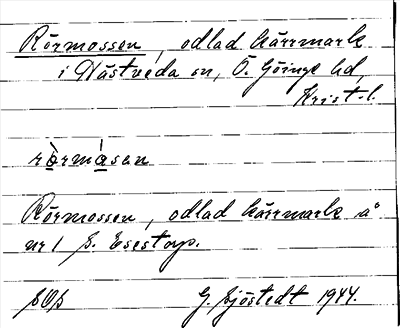 Rörmossen, odlad kärrmark
i Västveda sn, Ö. Göinge hd,
Krist-l.
rörmåsen
Rörmossen, odlad kärrmark å
nr 1 S. Esestorp.
SOS
G. Sjöstedt 1944.